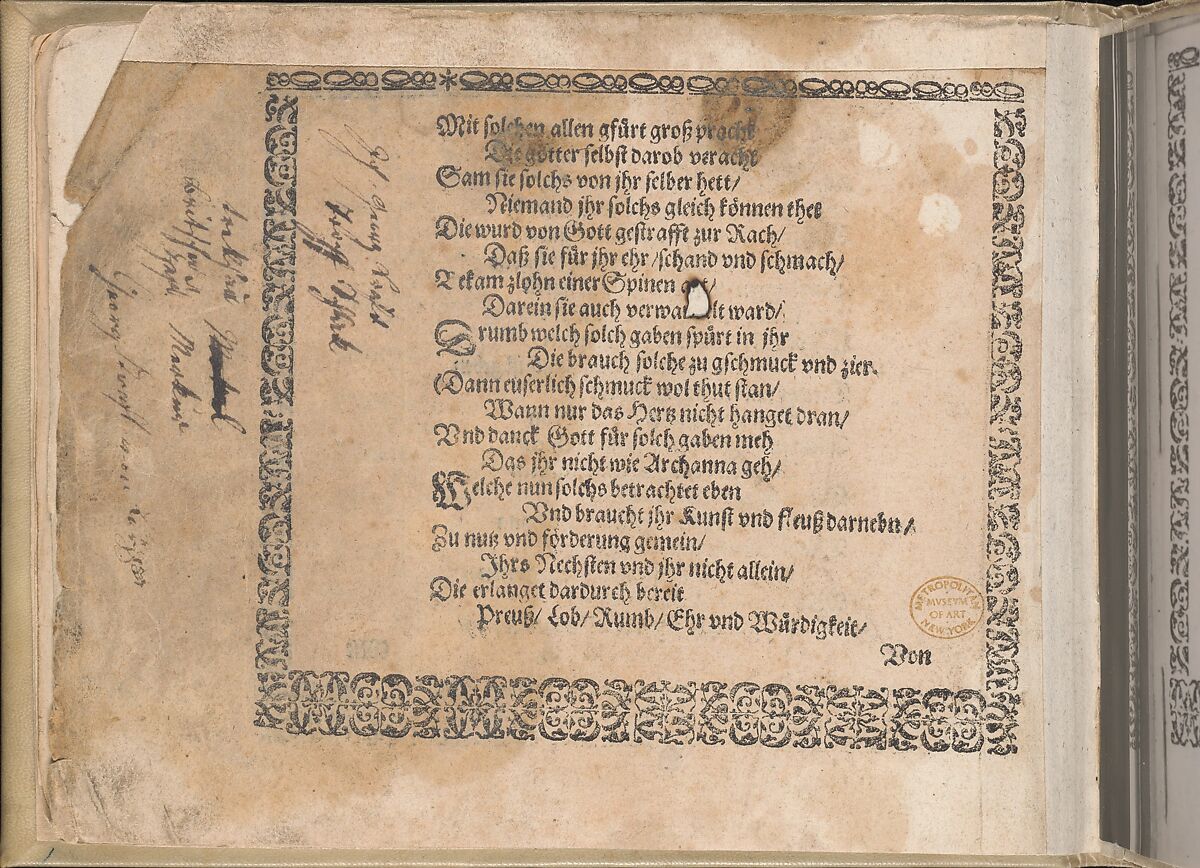 Mit solchen allen gfürt groß pracht
Die götter selbst darob veracht
Sam sie solchs von jhr selber hett/
Niemand jhr solchs gleich können thet
Die wurd von Gott gestrafft zur Rach/
Daß sie für jhr ehr/schand vnd schmach/
Bekam zlohn einer Spinen
Darein sie auch ward/
Drumb welch solch gaben spürt in jhr
Die brauch solche zu gschmuck vnd zier.
(Dann euserlich schmuck wol thut stan/
Wann nur das Hertz nicht hanget dran/
Vnd danck Gott für solch gaben meh
Das jhr nicht wie Archanna geh/
Welche nun solchs betrachtet eben
Vnd braucht jhr Kunst vnd fleuß darnebn/
Zu nutz vnd förderung gemein/
Jhrs Nechsten vnd jhr nicht allein/
Die erlanget dardurch bereit
Preuß/ Lob/ Rumb/ Ehr vnd Würdigkeit/
Von
METROPOLITAN
MVSEVM
OF ART
NEW YORK